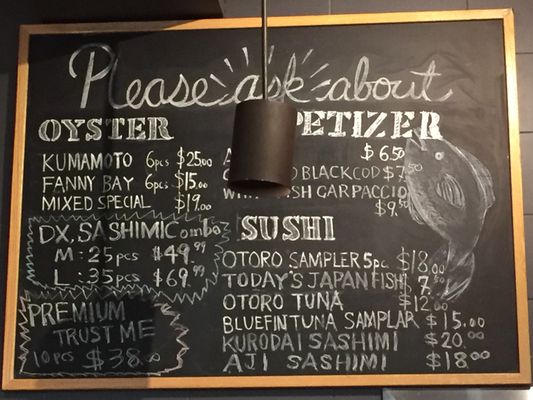 Please ask about
OYSTER
KUMAMOTO 6pcs $25.00
FANNY BAY 6pcs $15.00
MIXED SPECIAL $19.00
DX, SASHIMI Combo
M: 25pcs $49.99
L: 35pcs $69.99
PREMIUM
TRUST ME
10pcs $38.00
PETIZER
A $6.50
BLACKCOD $7.50
FISH CARPACCIO
$9.50
SUSHI
OTORO SAMPLER 5pc. $18.00
TODAY'S JAPAN FISH $7.50
OTORO TUNA $12.00
BLUEFIN TUNA SAMPLAR $15.00
KURODAI SASHIMI $20.00
AJI SASHIMI $18.00